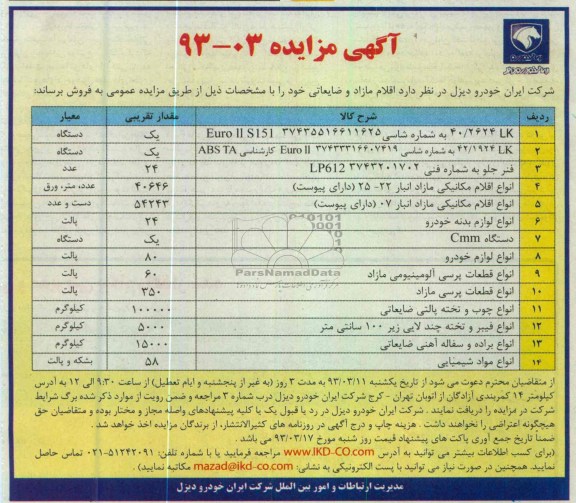 آگهی مزایده ۰۳-۹۳
شرکت ایران خودرو دیزل در نظر دارد اقلام مازاد و ضایعاتی خود را با مشخصات ذیل از طریق مزایده عمومی به فروش برساند:
ردیف شرح کالا مقدار تقریبی معیار
۱ ۴۰/۲۶۲۴ LK به شماره شاسی ۳۷۴۳۵۵۱۶۶۱۱۶۲۵ Euro II S151 یک دستگاه
۲ ۴۲/۱۹۲۴ LK به شماره شاسی ۳۷۴۳۳۳۱۶۶۰۷۴۱۹ Euro II کارشناسی ABS TA یک دستگاه
۳ فنر جلو به شماره فنی ۳۷۴۳۲۰۱۷۰۲ LP612 ۲۴ عدد
۴ انواع اقلام مکانیکی مازاد انبار ۲۲- ۲۵ (دارای پیوست) ۴۰۶۴۶ عدد، متر، ورق
۵ انواع اقلام مکانیکی مازاد انبار ۰۷ (دارای پیوست) ۵۴۲۴۳ دست و عدد
۶ انواع لوازم بدنه خودرو ۲۴ پالت
۷ دستگاه Cmm یک دستگاه
۸ انواع لوازم خودرو ۸۰ پالت
۹ انواع قطعات پرسی آلومینیومی مازاد ۶۰ پالت
۱۰ انواع قطعات پرسی مازاد ۳۵۰ پالت
۱۱ انواع چوب و تخته پالتی ضایعاتی ۱۰۰۰۰۰ کیلوگرم
۱۲ انواع فیبر و تخته چند لایی زیر ۱۰۰ سانتی متر ۵۰۰۰ کیلوگرم
۱۳ انواع براده و سفاله آهنی ضایعاتی ۱۵۰۰۰ کیلوگرم
۱۴ انواع مواد شیمیایی ۵۸ بشکه و پالت
ParsNamadData
از متقاضیان محترم دعوت می شود از تاریخ یکشنبه ۹۳/۰۳/۱۱ به مدت ۳ روز (به غیر از پنجشنبه و ایام تعطیل) از ساعت ۹:۳۰ الی ۱۲ به آدرس
کیلومتر ۱۴ کمربندی آزادگان از اتوبان تهران - کرج شرکت ایران خودرو دیزل درب شماره ۳ مراجعه و ضمن رویت از موارد ذکر شده برگ شرایط
شرکت در مزایده را دریافت نمایند . شرکت ایران خودرو دیزل در رد یا قبول یک یا کلیه پیشنهادهای واصله مجاز و مختار بوده و متقاضیان حق
هیچگونه اعتراضی را نخواهند داشت . هزینه چاپ و درج آگهی در روزنامه های کثیرالانتشار، از برندگان مزایده اخذ خواهد شد .
ضمناً تاریخ جمع آوری پاکت های پیشنهاد قیمت روز شنبه مورخ ۹۳/۰۳/۱۷ می باشد .
(برای کسب اطلاعات بیشتر می توانید به آدرس www.IKD-CO.com مراجعه فرمایید یا با شماره تلفن: ۵۱۲۴۲۰۹۱-۰۲۱ تماس حاصل
نمایید. همچنین در صورت نیاز می توانید با پست الکترونیکی به نشانی: mazad@ikd-co.com مکاتبه نمایید) .
مدیریت ارتباطات و امور بین الملل شرکت ایران خودرو دیزل